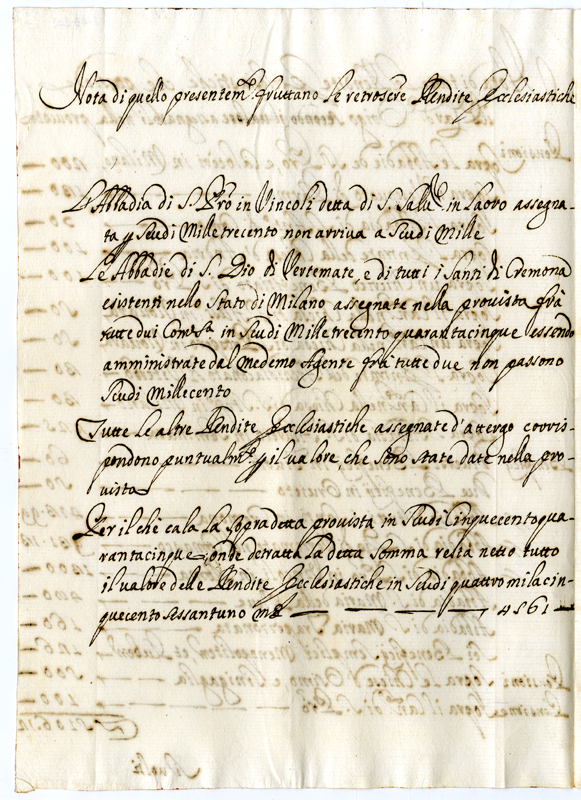 Nota di quello presentem.te fruttano le retroscrᵉ Rendite Ecclesiastiche
L'Abbadia di S. Pro in Vincoli detta di S. Salv.e in Lavro assegna-
ta p Scudi Mille trecento non arriva a Scudi Mille
Le Abbadie di S. Dio di Vertemate, e di tutti i Santi di Cremona
esistenti nello Stato di Milano assegnate nella provista frà
tutte dui in Scudi Mille trecento quarantacinque essendo
amministrate dal medemo Agente frà tutte due non passono
Scudi Millecento
Tutte le altre Rendite Ecclesiastiche assegnate d'attergo corris-
pondono puntualm.te p il valore, che sono state date nella pro-
vista
Per il che cala la sopradetta provista in Scudi Cinquecento qua-
rantacinque, onde detratta la detta somma resta netto tutto
il valore delle Rendite Ecclesiastiche in Scudi quattro mila cin-
quecento sessantuno m.ta — — — — — 4561 —